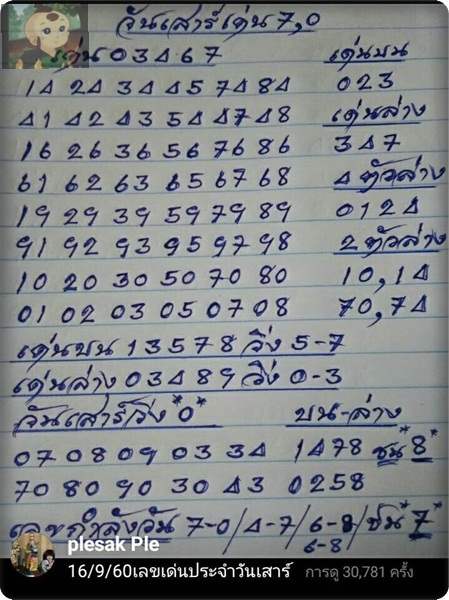 วันเสาร์เด่น 7,0
เด่น 0 3 4 6 7
14 24 34 45 74 84
41 42 43 54 47 48
16 26 36 56 76 86
61 62 63 65 67 68
19 29 39 59 79 89
91 92 93 95 97 98
10 20 30 50 70 80
01 02 03 05 07 08
เด่นบน
023
เด่นล่าง
347
4 ตัวล่าง
0124
2 ตัวล่าง
10,14
70,74
เด่นบน 13578 วิ่ง 5-7
เด่นล่าง 03489 วิ่ง 0-3
วันเสาร์วิ่ง *0*
07 08 09 03 34
70 80 90 30 43
บน-ล่าง
1478 ชน *8*
0258
เลขกำลังวัน 7-0/4-7/6-8/ชน *7*
6-8
plesak Ple
16/9/60เลขเด่นประจำวันเสาร์ การดู 30,781 ครั้ง